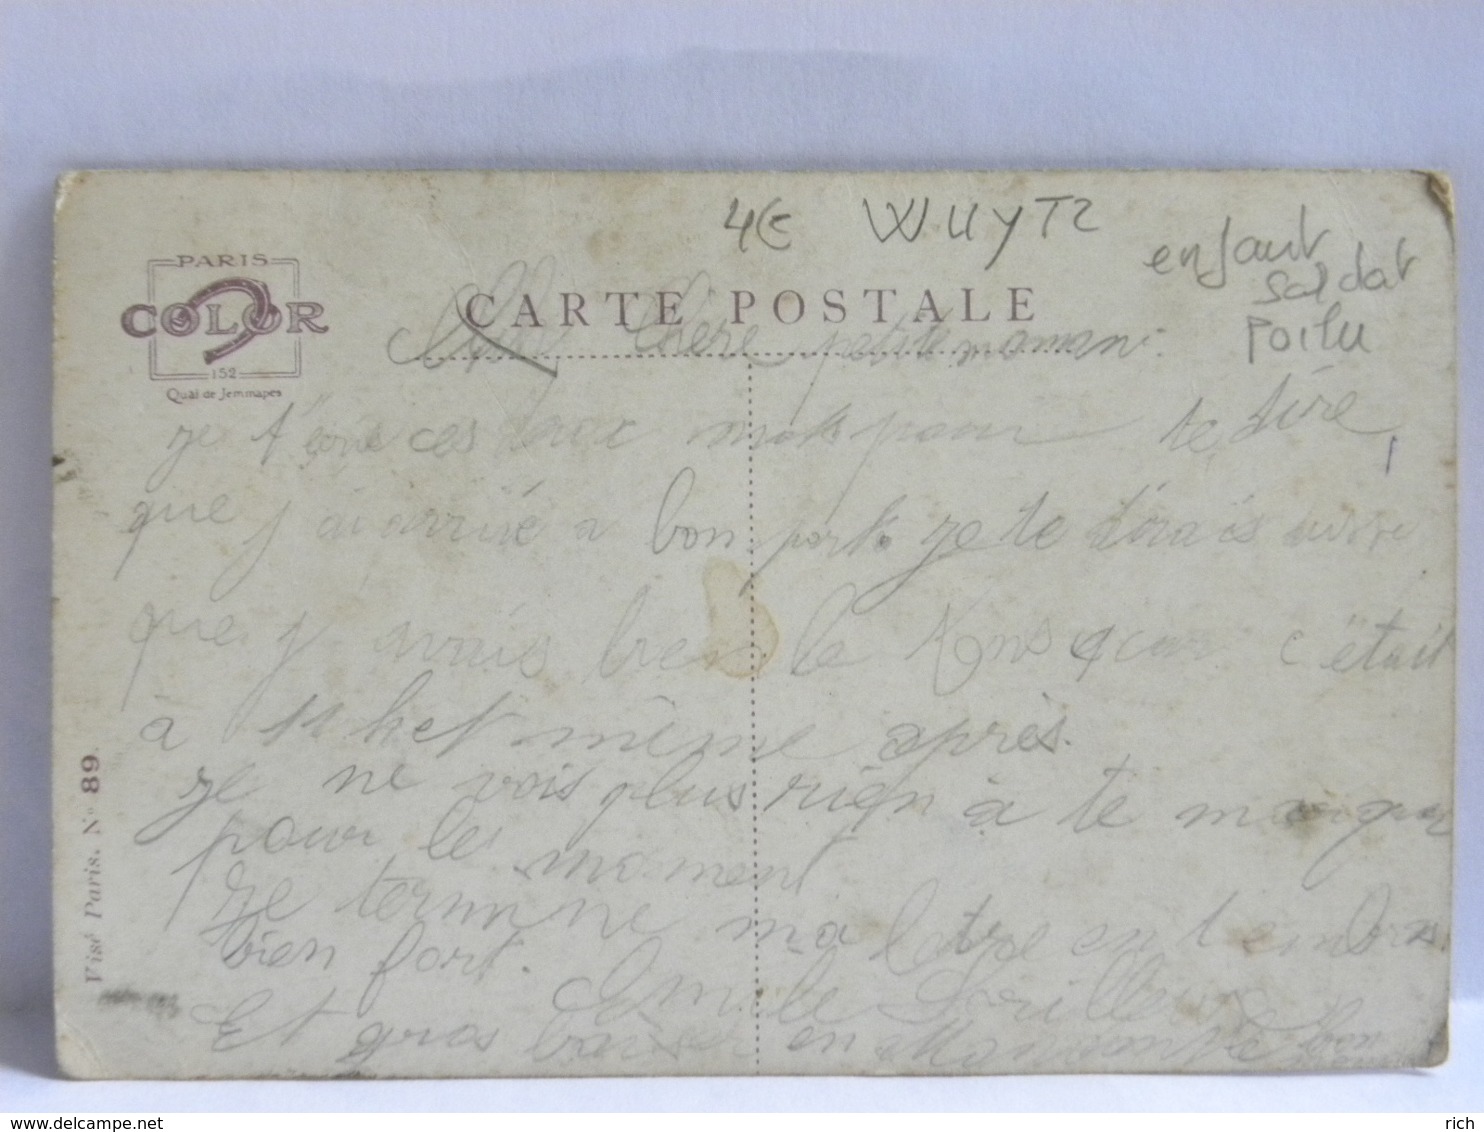 4€ WUYTZ
enfant
soldat
Poilu
PARIS
COLOR
152
Quai de Jemmapes
CARTE POSTALE
chère petite maman.
je t'écrie ces deux mots pour te dire
que j'ai arrivé à bon port je te dirais
que j avais bien le c'était
à 11 h et même après.
Je ne vois plus rien à te marquer
pour le moment
Je termine ma letre en t'embras
bien fort. Emile Lorilleux
Et gros baiser en
Visé Paris. N° 89
rich